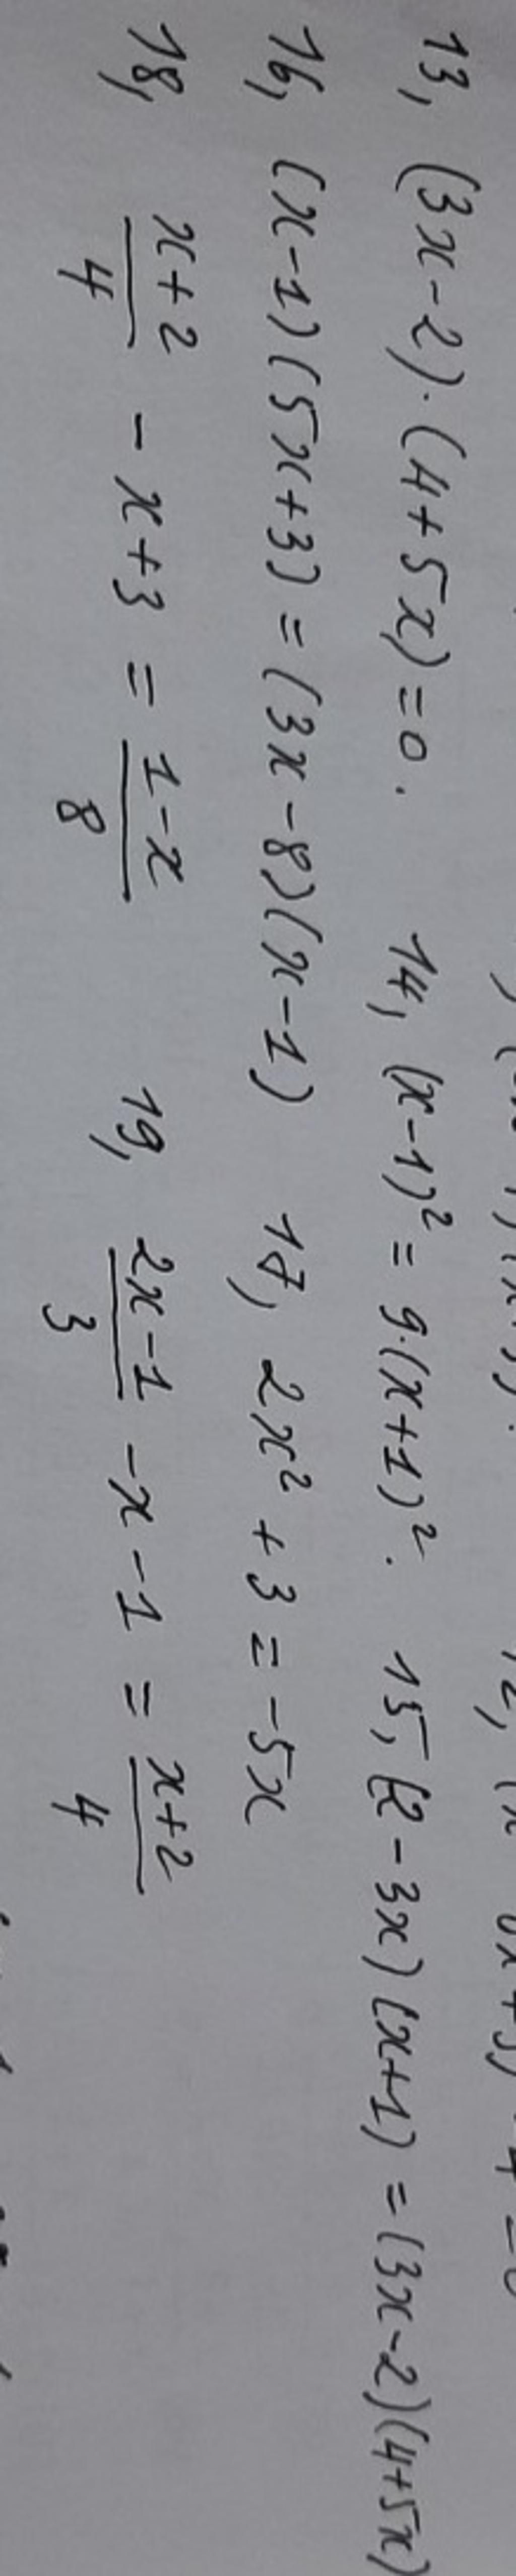 13, (3x-2).(4+5x)=0. 14, (x-1)² = 9.(x+1)². 15, (2-3x)(x+1) = (3x-2)(4+5x)
16, (x-1)(5x+3) = (3x-8)(x-1) 17, 2x² + 3 = -5x
18, \frac{x+2}{4} - x+3 = \frac{1-x}{8} 19, \frac{2x-1}{3} - x - 1 = \frac{x+2}{4}